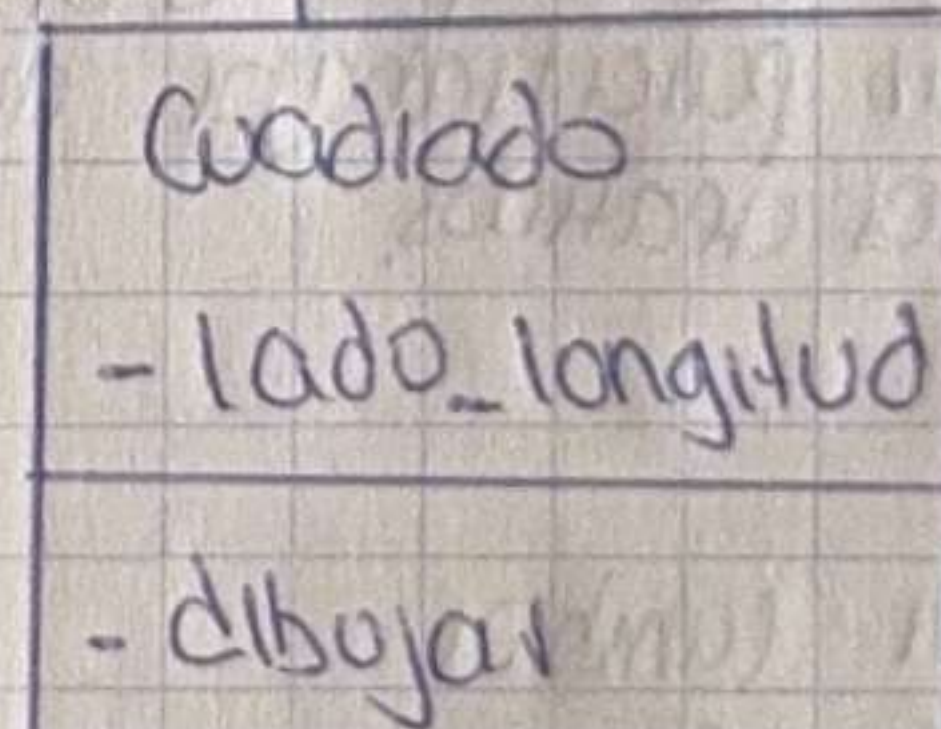 Cuadrado
- lado_longitud
- dibujar